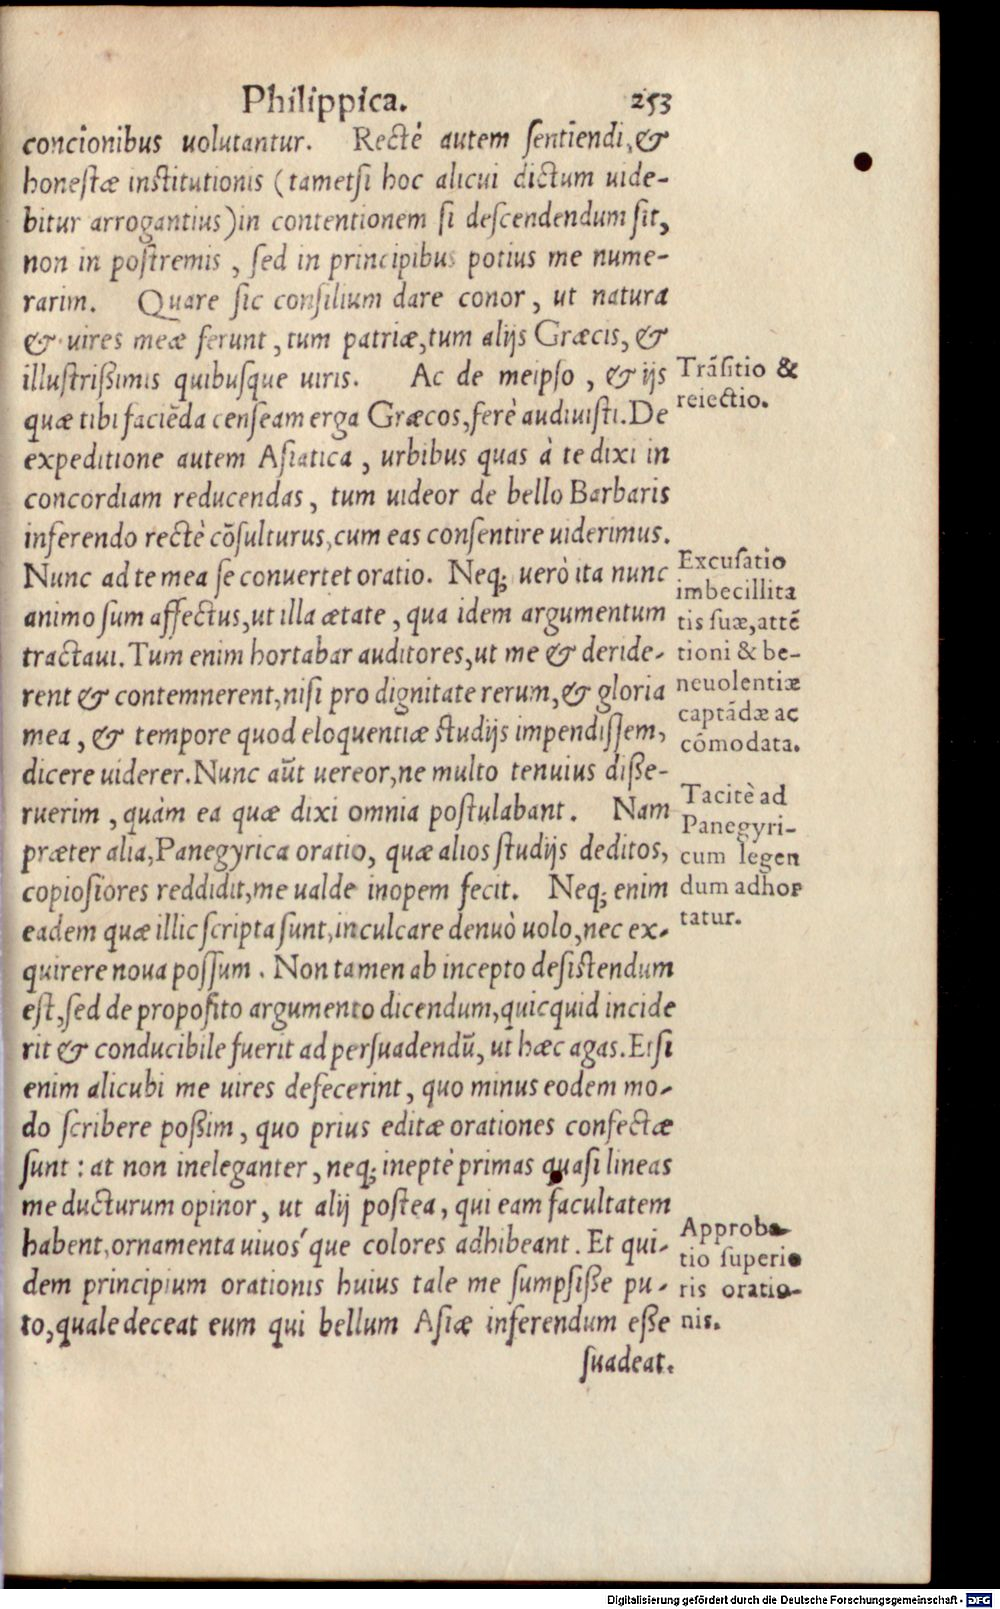 Philippica. 253
concionibus uolutantur. Rectè autem sentiendi, &
honestæ institutionis (tametsi hoc alicui dictum uide-
bitur arrogantius) in contentionem si descendendum sit,
non in postremis, sed in principibus potius me nume-
rarim. Quare sic consilium dare conor, ut natura
& uires meæ ferunt, tum patriæ, tum alijs Græcis, &
illustrißimis quibusque uiris. Ac de meipso, & ijs
quæ tibi faciẽda censeam erga Græcos, ferè audiuisti. De
expeditione autem Asiatica, urbibus quas à te dixi in
concordiam reducendas, tum uideor de bello Barbaris
inferendo rectè cõsulturus, cum eas consentire uiderimus.
Nunc ad te mea se conuertet oratio. Neq; uerò ita nunc
animo sum affectus, ut illa ætate, qua idem argumentum
tractaui. Tum enim hortabar auditores, ut me & deride-
rent & contemnerent, nisi pro dignitate rerum, & gloria
mea, & tempore quod eloquentiæ studijs impendissem,
dicere uiderer. Nunc aũt uereor, ne multo tenuius diße-
ruerim, quàm ea quæ dixi omnia postulabant. Nam
præter alia, Panegyrica oratio, quæ alios studijs deditos,
copiosiores reddidit, me ualde inopem fecit. Neq; enim
eadem quæ illic scripta sunt, inculcare denuò uolo, nec ex-
quirere noua possum. Non tamen ab incepto desistendum
est, sed de proposito argumento dicendum, quicquid incide
rit & conducibile fuerit ad persuadendũ, ut hæc agas. Etsi
enim alicubi me uires defecerint, quo minus eodem mo-
do scribere poßim, quo prius editæ orationes confectæ
sunt: at non ineleganter, neq; ineptè primas quasi lineas
me ducturum opinor, ut alij postea, qui eam facultatem
habent, ornamenta uiuos´que colores adhibeant. Et qui-
dem principium orationis huius tale me sumpsiße pu-
to, quale deceat eum qui bellum Asiæ inferendum eße
suadeat.
Trãsitio &
reiectio.
Excusatio
imbecillita
tis suæ, attẽ
tioni & be-
neuolentiæ
captãdæ ac
cõmodata.
Tacitè ad
Panegyri-
cum legen
dum adhor
tatur.
Approba-
tio superio
ris oratio-
nis.
Digitalisierung gefördert durch die Deutsche Forschungsgemeinschaft - DFG